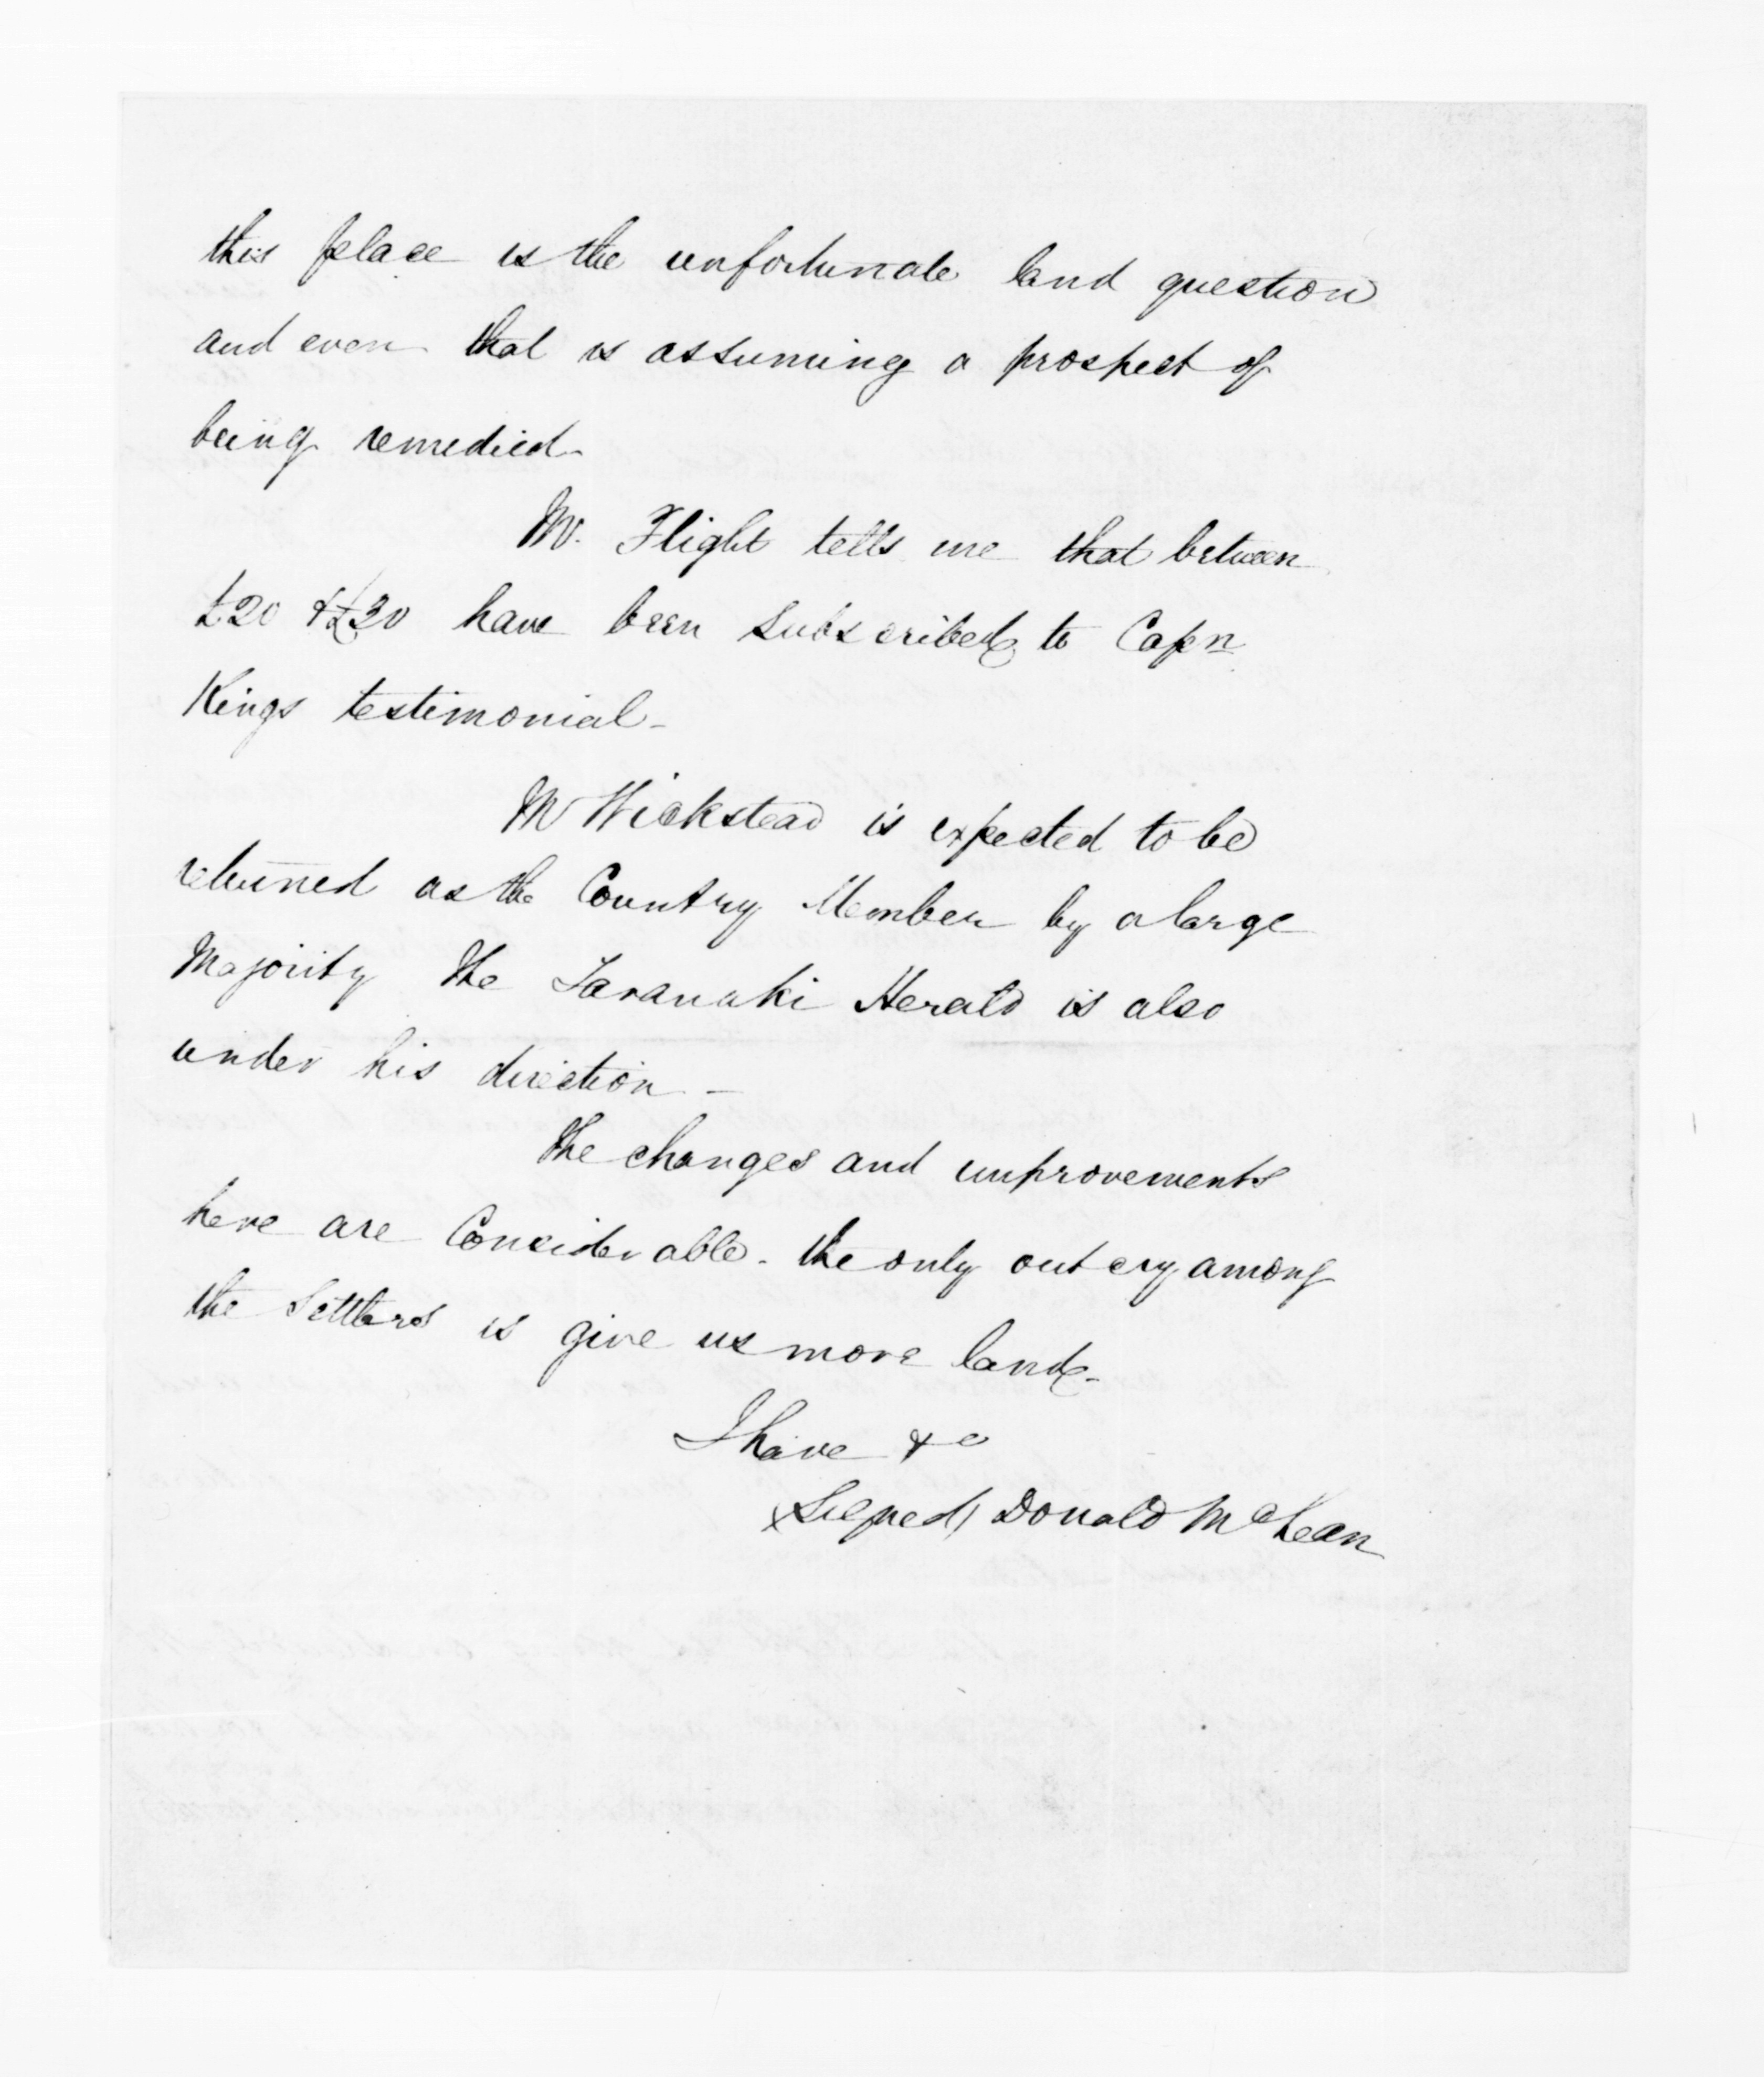 this place is the unfortunate land question
and even that is assuming a prospect of
being remedied-
Mr. Flight tells me that between
£20 & £30 have been subscribed to Capn
Kings testimonial-
Mr Wickstead is expected to be
returned as the Country Member by a large
Majority The Taranaki Herald is also
under his direction-
The changes and improvements
here are Considerable. the only outcry among
the Settlers is give us more land-
I have &c
(Signed) Donald McLean